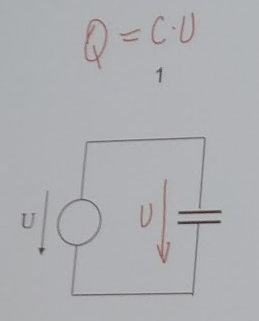 Q = C·U
1
U
U